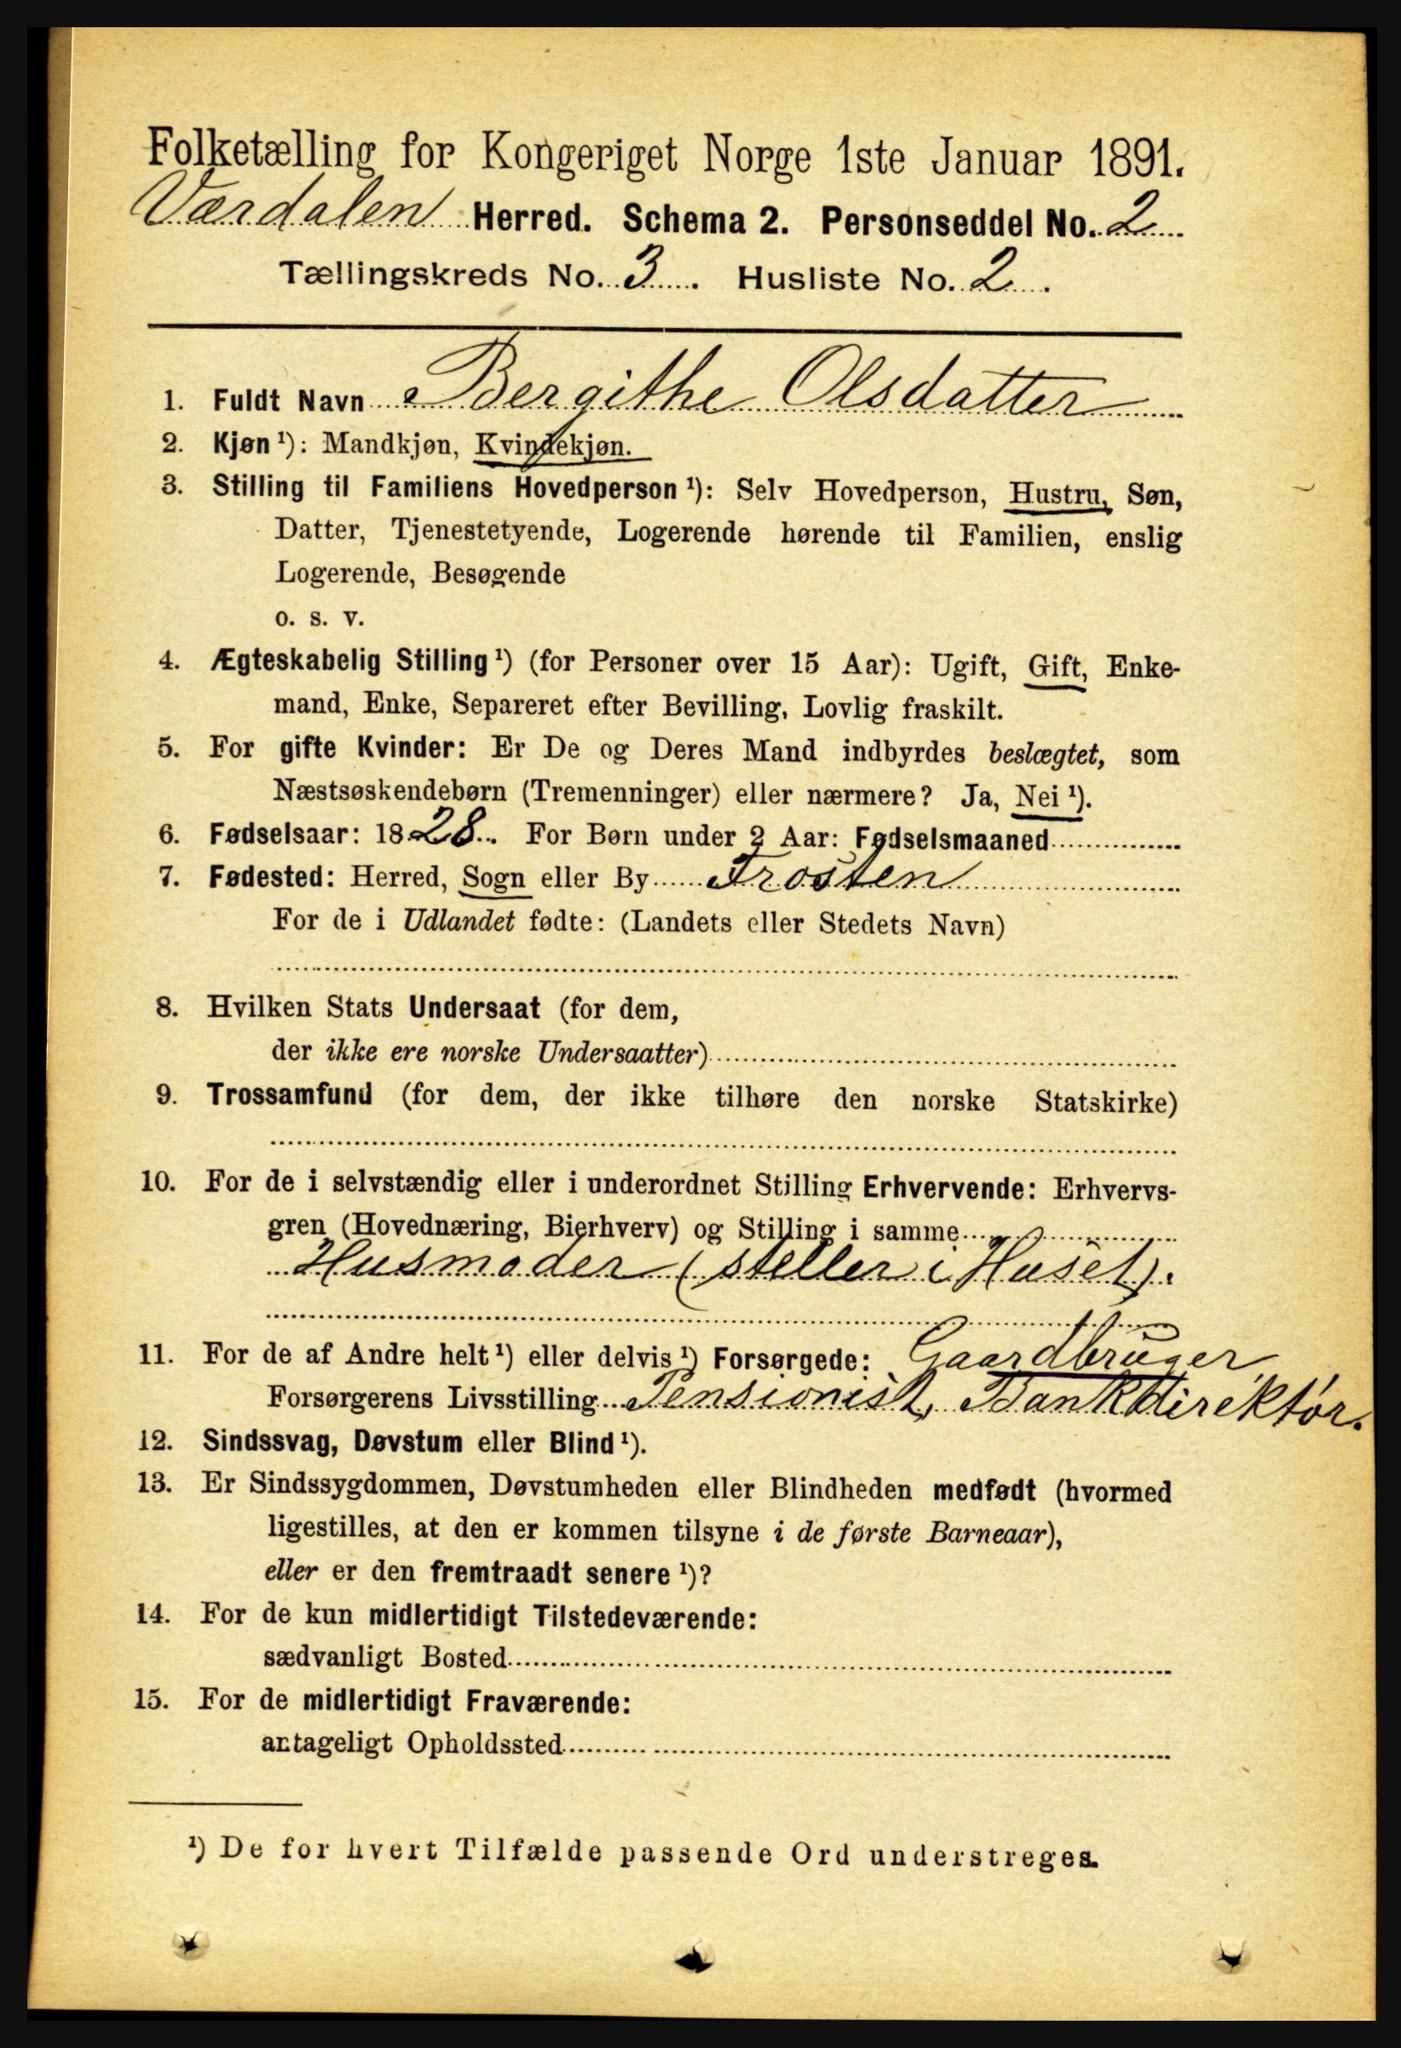 Folketælling for Kongeriget Norge 1ste Januar 1891.
Værdalen Herred. Schema 2. Personseddel No. 2
Tællingskreds No. 3. Husliste No. 2.
1. Fuldt Navn Bergithe Olsdatter
2. Kjøn ¹): Mandkjøn, Kvindekjøn.
3. Stilling til Familiens Hovedperson ¹): Selv Hovedperson, Hustru, Søn,
Datter, Tjenestetyende, Logerende hørende til Familien, enslig
Logerende, Besøgende
o. s. v.
4. Ægteskabelig Stilling ¹) (for Personer over 15 Aar): Ugift, Gift, Enke-
mand, Enke, Separeret efter Bevilling, Lovlig fraskilt.
5. For gifte Kvinder: Er De og Deres Mand indbyrdes beslægtet, som
Næstsøskendebørn (Tremenninger) eller nærmere? Ja, Nei ¹).
6. Fødselsaar: 1828. For Børn under 2 Aar: Fødselsmaaned
7. Fødested: Herred, Sogn eller By Frosten
For de i Udlandet fødte: (Landets eller Stedets Navn)
8. Hvilken Stats Undersaat (for dem,
der ikke ere norske Undersaatter)
9. Trossamfund (for dem, der ikke tilhøre den norske Statskirke)
10. For de i selvstændig eller i underordnet Stilling Erhvervende: Erhvervs-
gren (Hovednæring, Bierhverv) og Stilling i samme
Husmoder (steller i Huset).
11. For de af Andre helt ¹) eller delvis ¹) Forsørgede: Gaardbruger,
Forsørgerens Livsstilling Pensionist, Bankdirektør.
12. Sindssvag, Døvstum eller Blind ¹).
13. Er Sindssygdommen, Døvstumheden eller Blindheden medfødt (hvormed
ligestilles, at den er kommen tilsyne i de første Barneaar),
eller er den fremtraadt senere ¹)?
14. For de kun midlertidigt Tilstedeværende:
sædvanligt Bosted
15. For de midlertidigt Fraværende:
antageligt Opholdssted
¹) De for hvert Tilfælde passende Ord understreges.